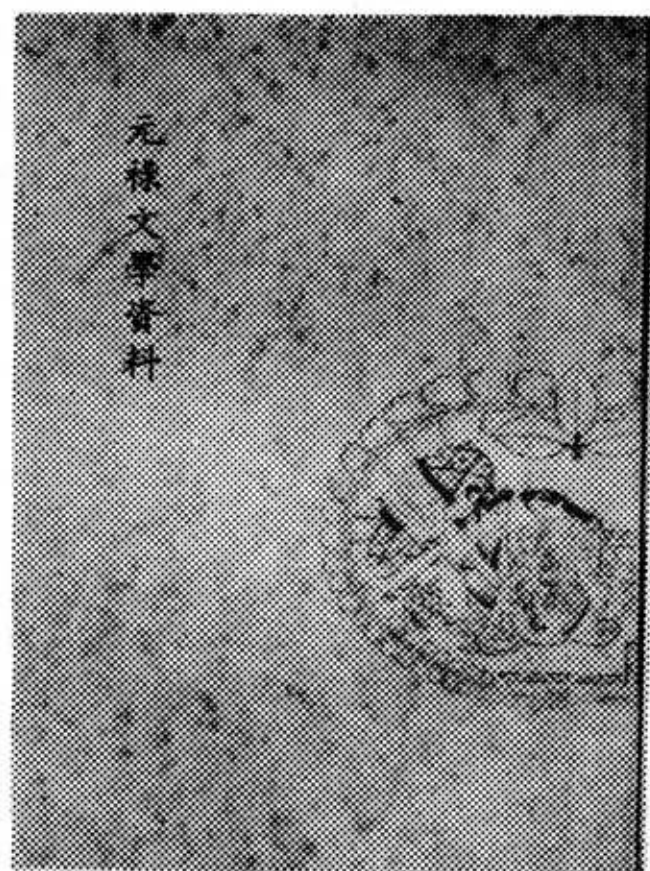 元祿文學資料